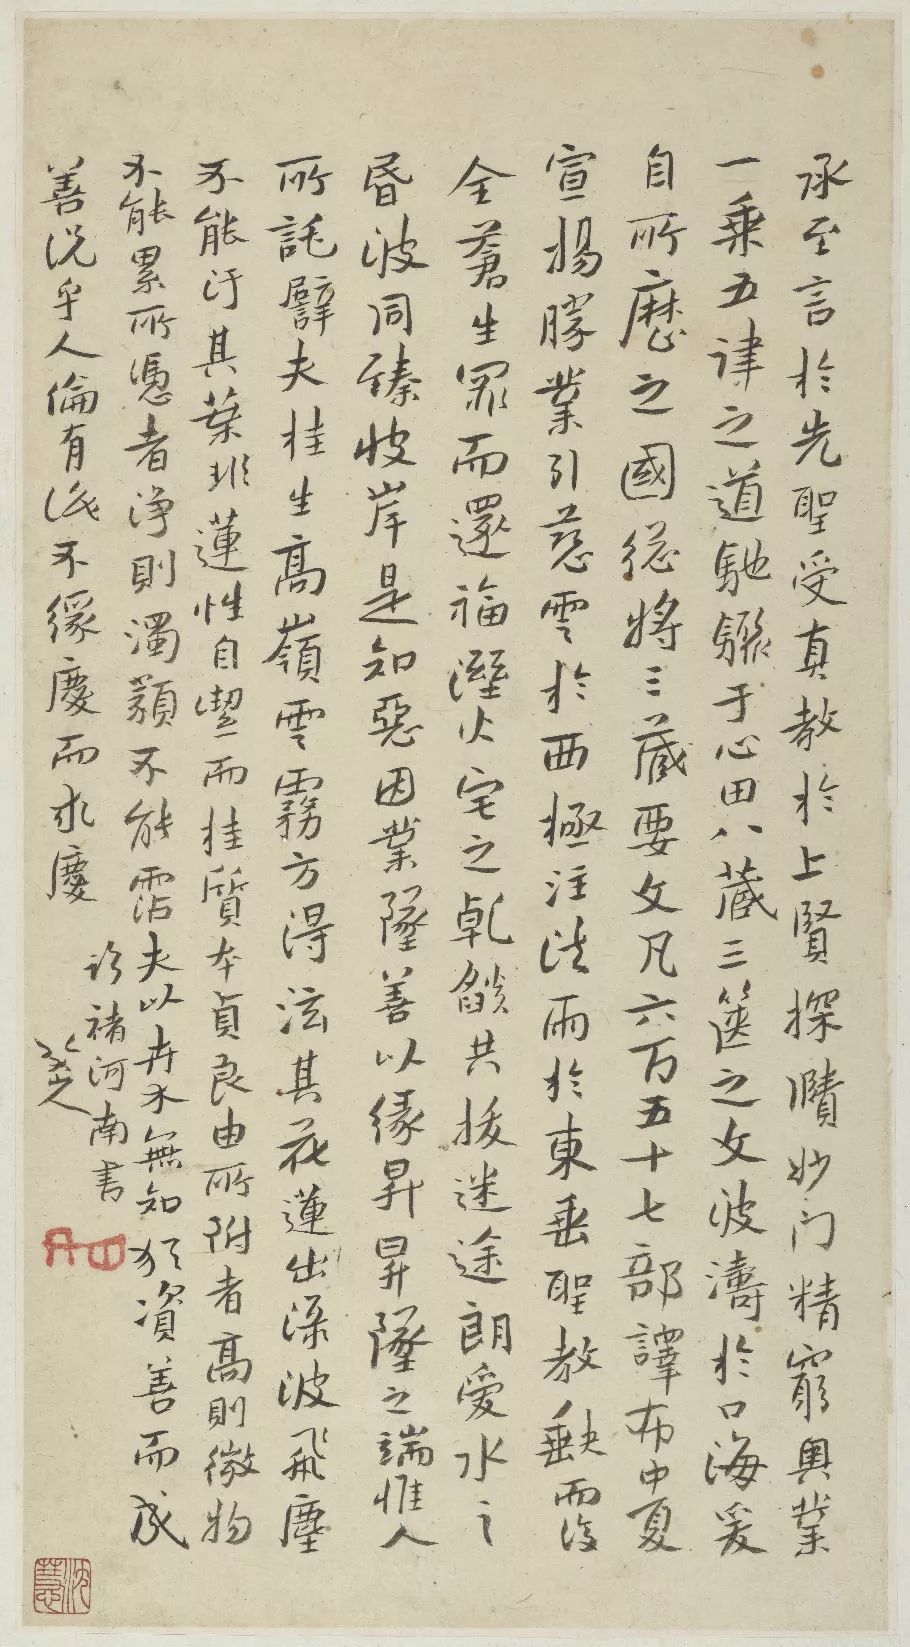 承至言於先聖受真教於上賢探賾妙门精窮奥業
一乗五律之道馳驟于心田八蔵三箧之文波濤於口海爰
自所歷之國総將三蔵要文凡六百五十七部譯布中夏
宣揚勝業引慈雲於西極注法雨於東垂聖教缺而復
全蒼生罪而還福溼火宅之乹燄共拔迷途朗愛水之
昏波同臻彼岸是知惡因業墜善以緣昇昇墜之端惟人
所託譬夫桂生高嶺雲霧方得泫其花蓮出渌波飛塵
不能汙其葉非蓮性自潔而桂質本貞良由所附者高則微物
不能累所憑者浄則濁類不能霑夫以卉木無知猶資善而成
善況乎人倫有識不緣慶而求慶
臨褚河南書
八大
沈慧